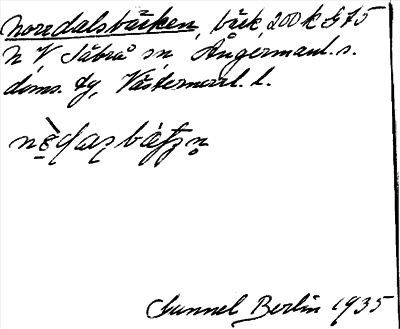 Norrdalsbäcken, bäck, 200 k S 75
N, V, Säbrå sn, Ångermanl. s.
doms. tg, Västernorrl. l.
Gunnel Berlin 1935